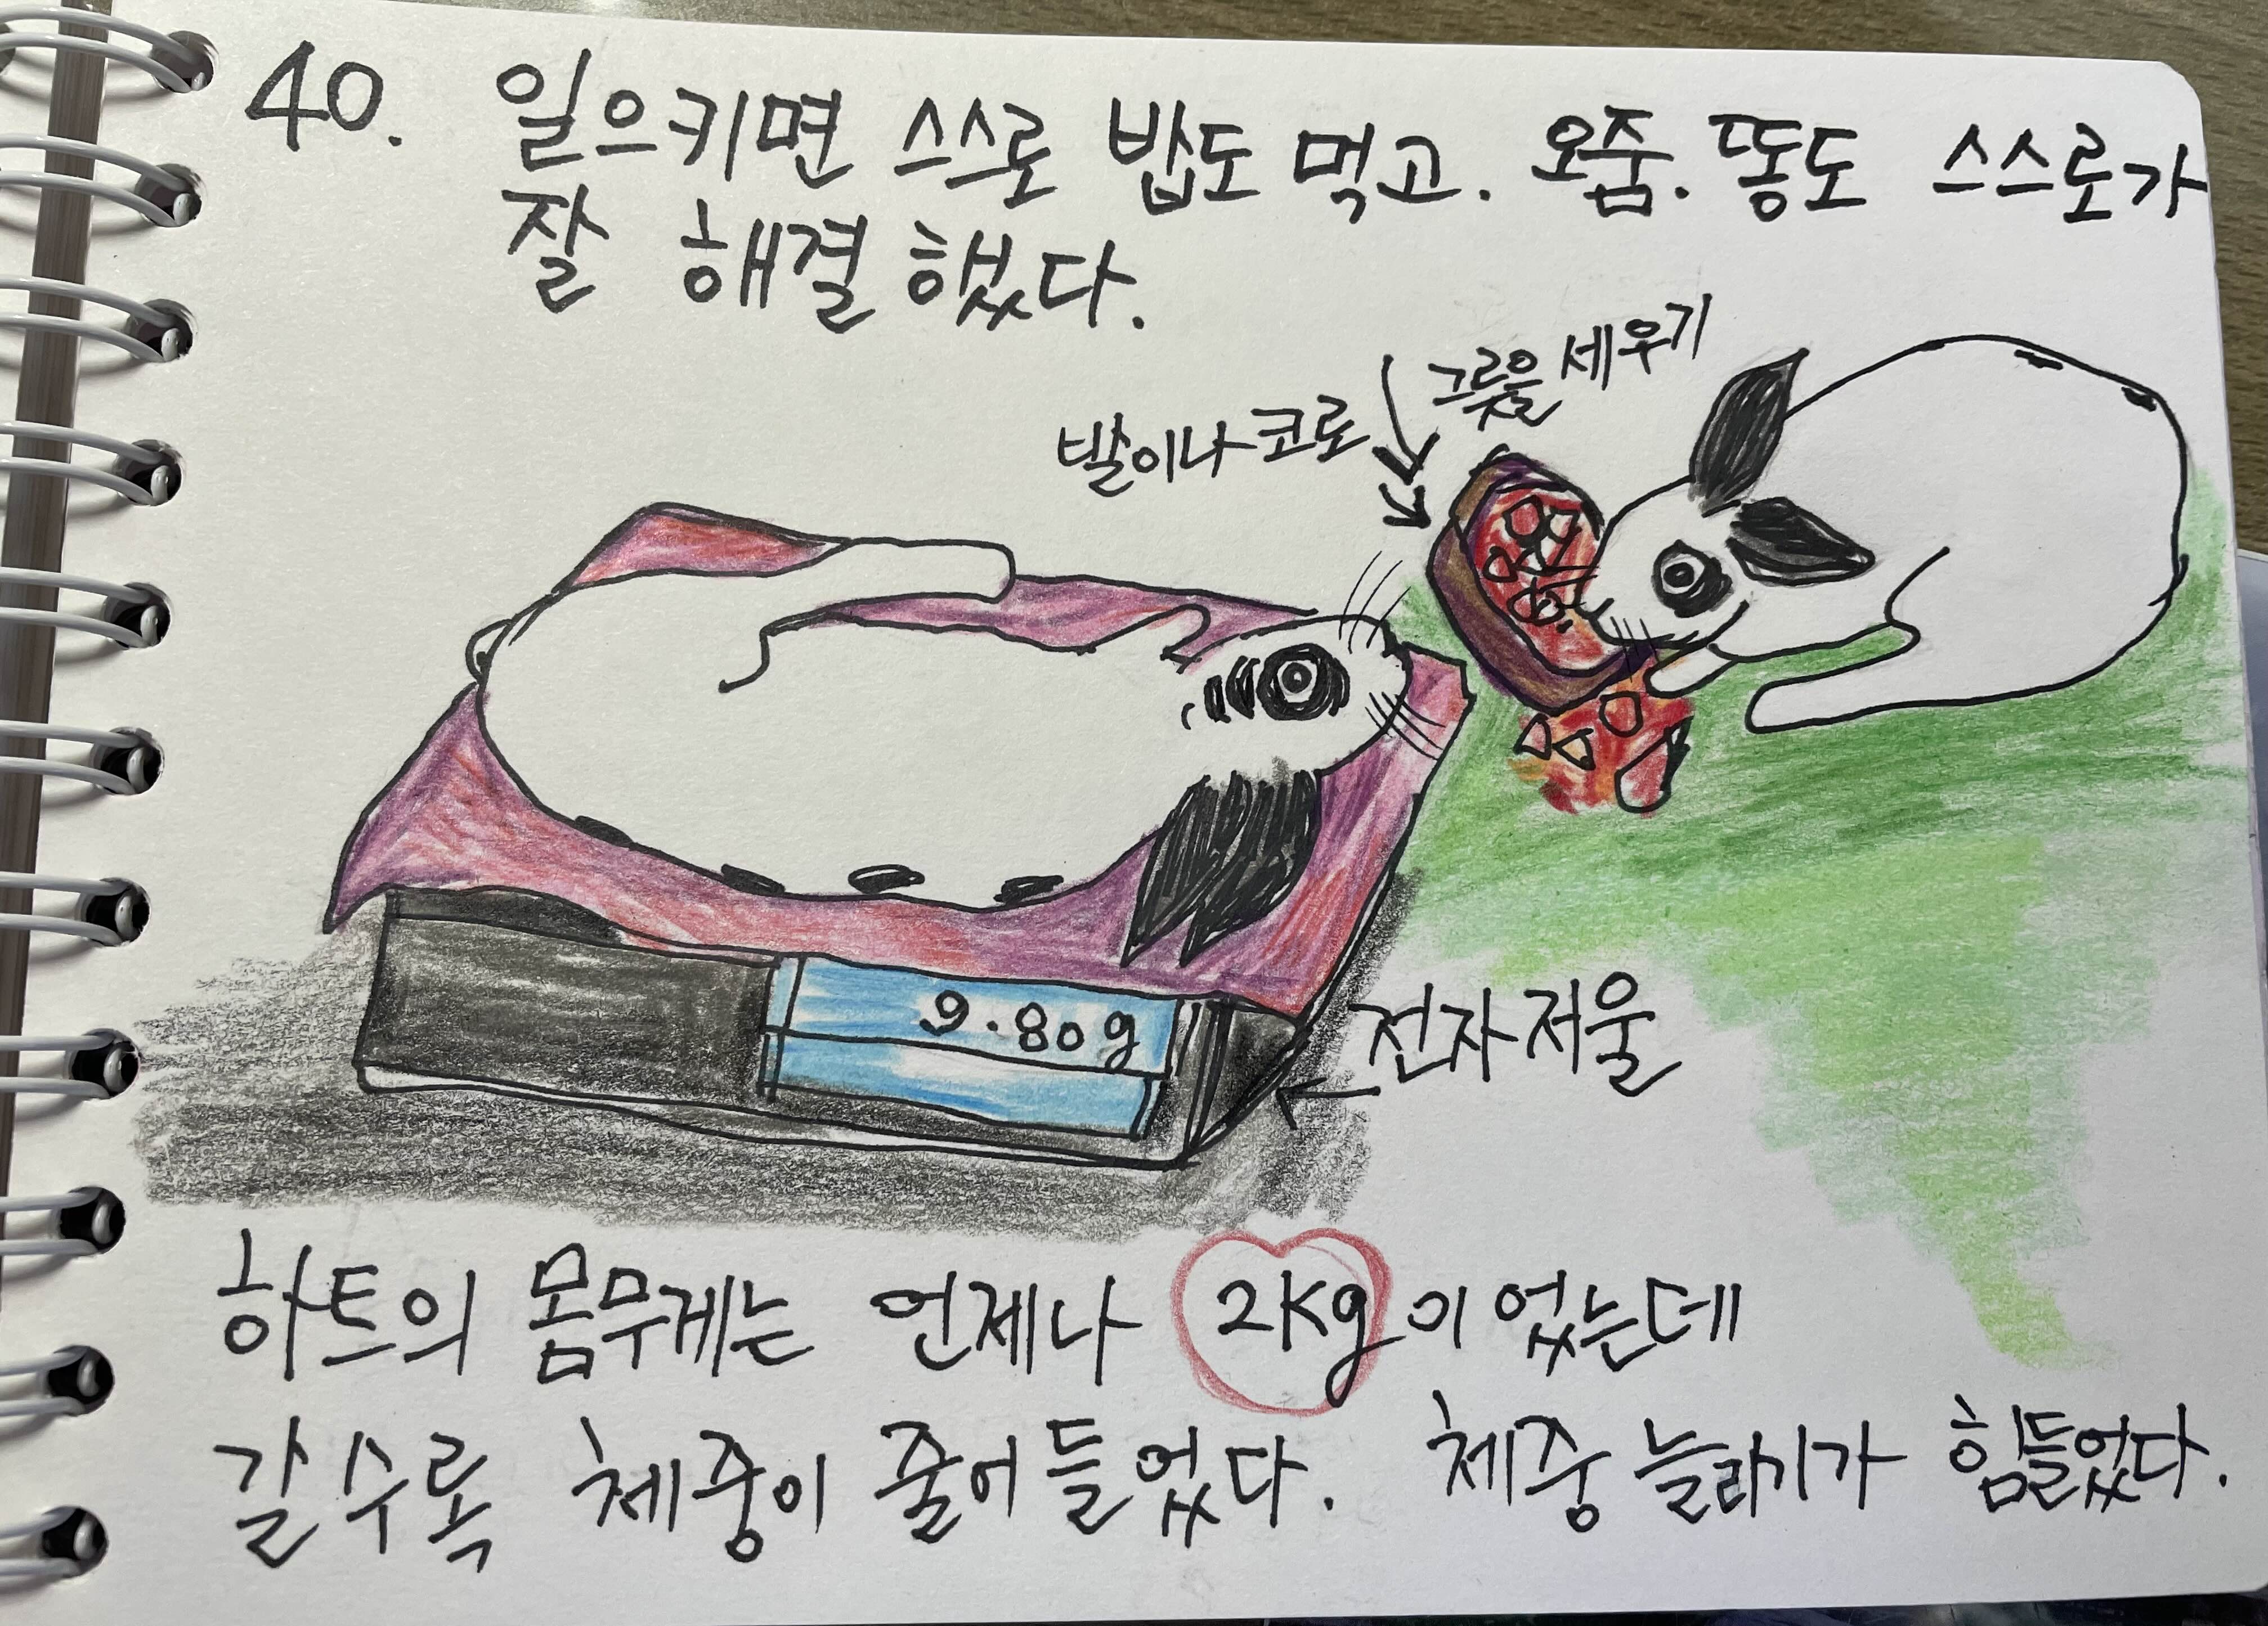 40. 일으키면 스스로 밥도 먹고. 오줌. 똥도 스스로가
잘 해결 했다.
그릇을 세우기
발이나 코로
9.80g
전자저울
하트의 몸무게는 언제나 2Kg이 었는데
갈수록 체중이 줄어들었다. 체중 늘리기가 힘들었다.